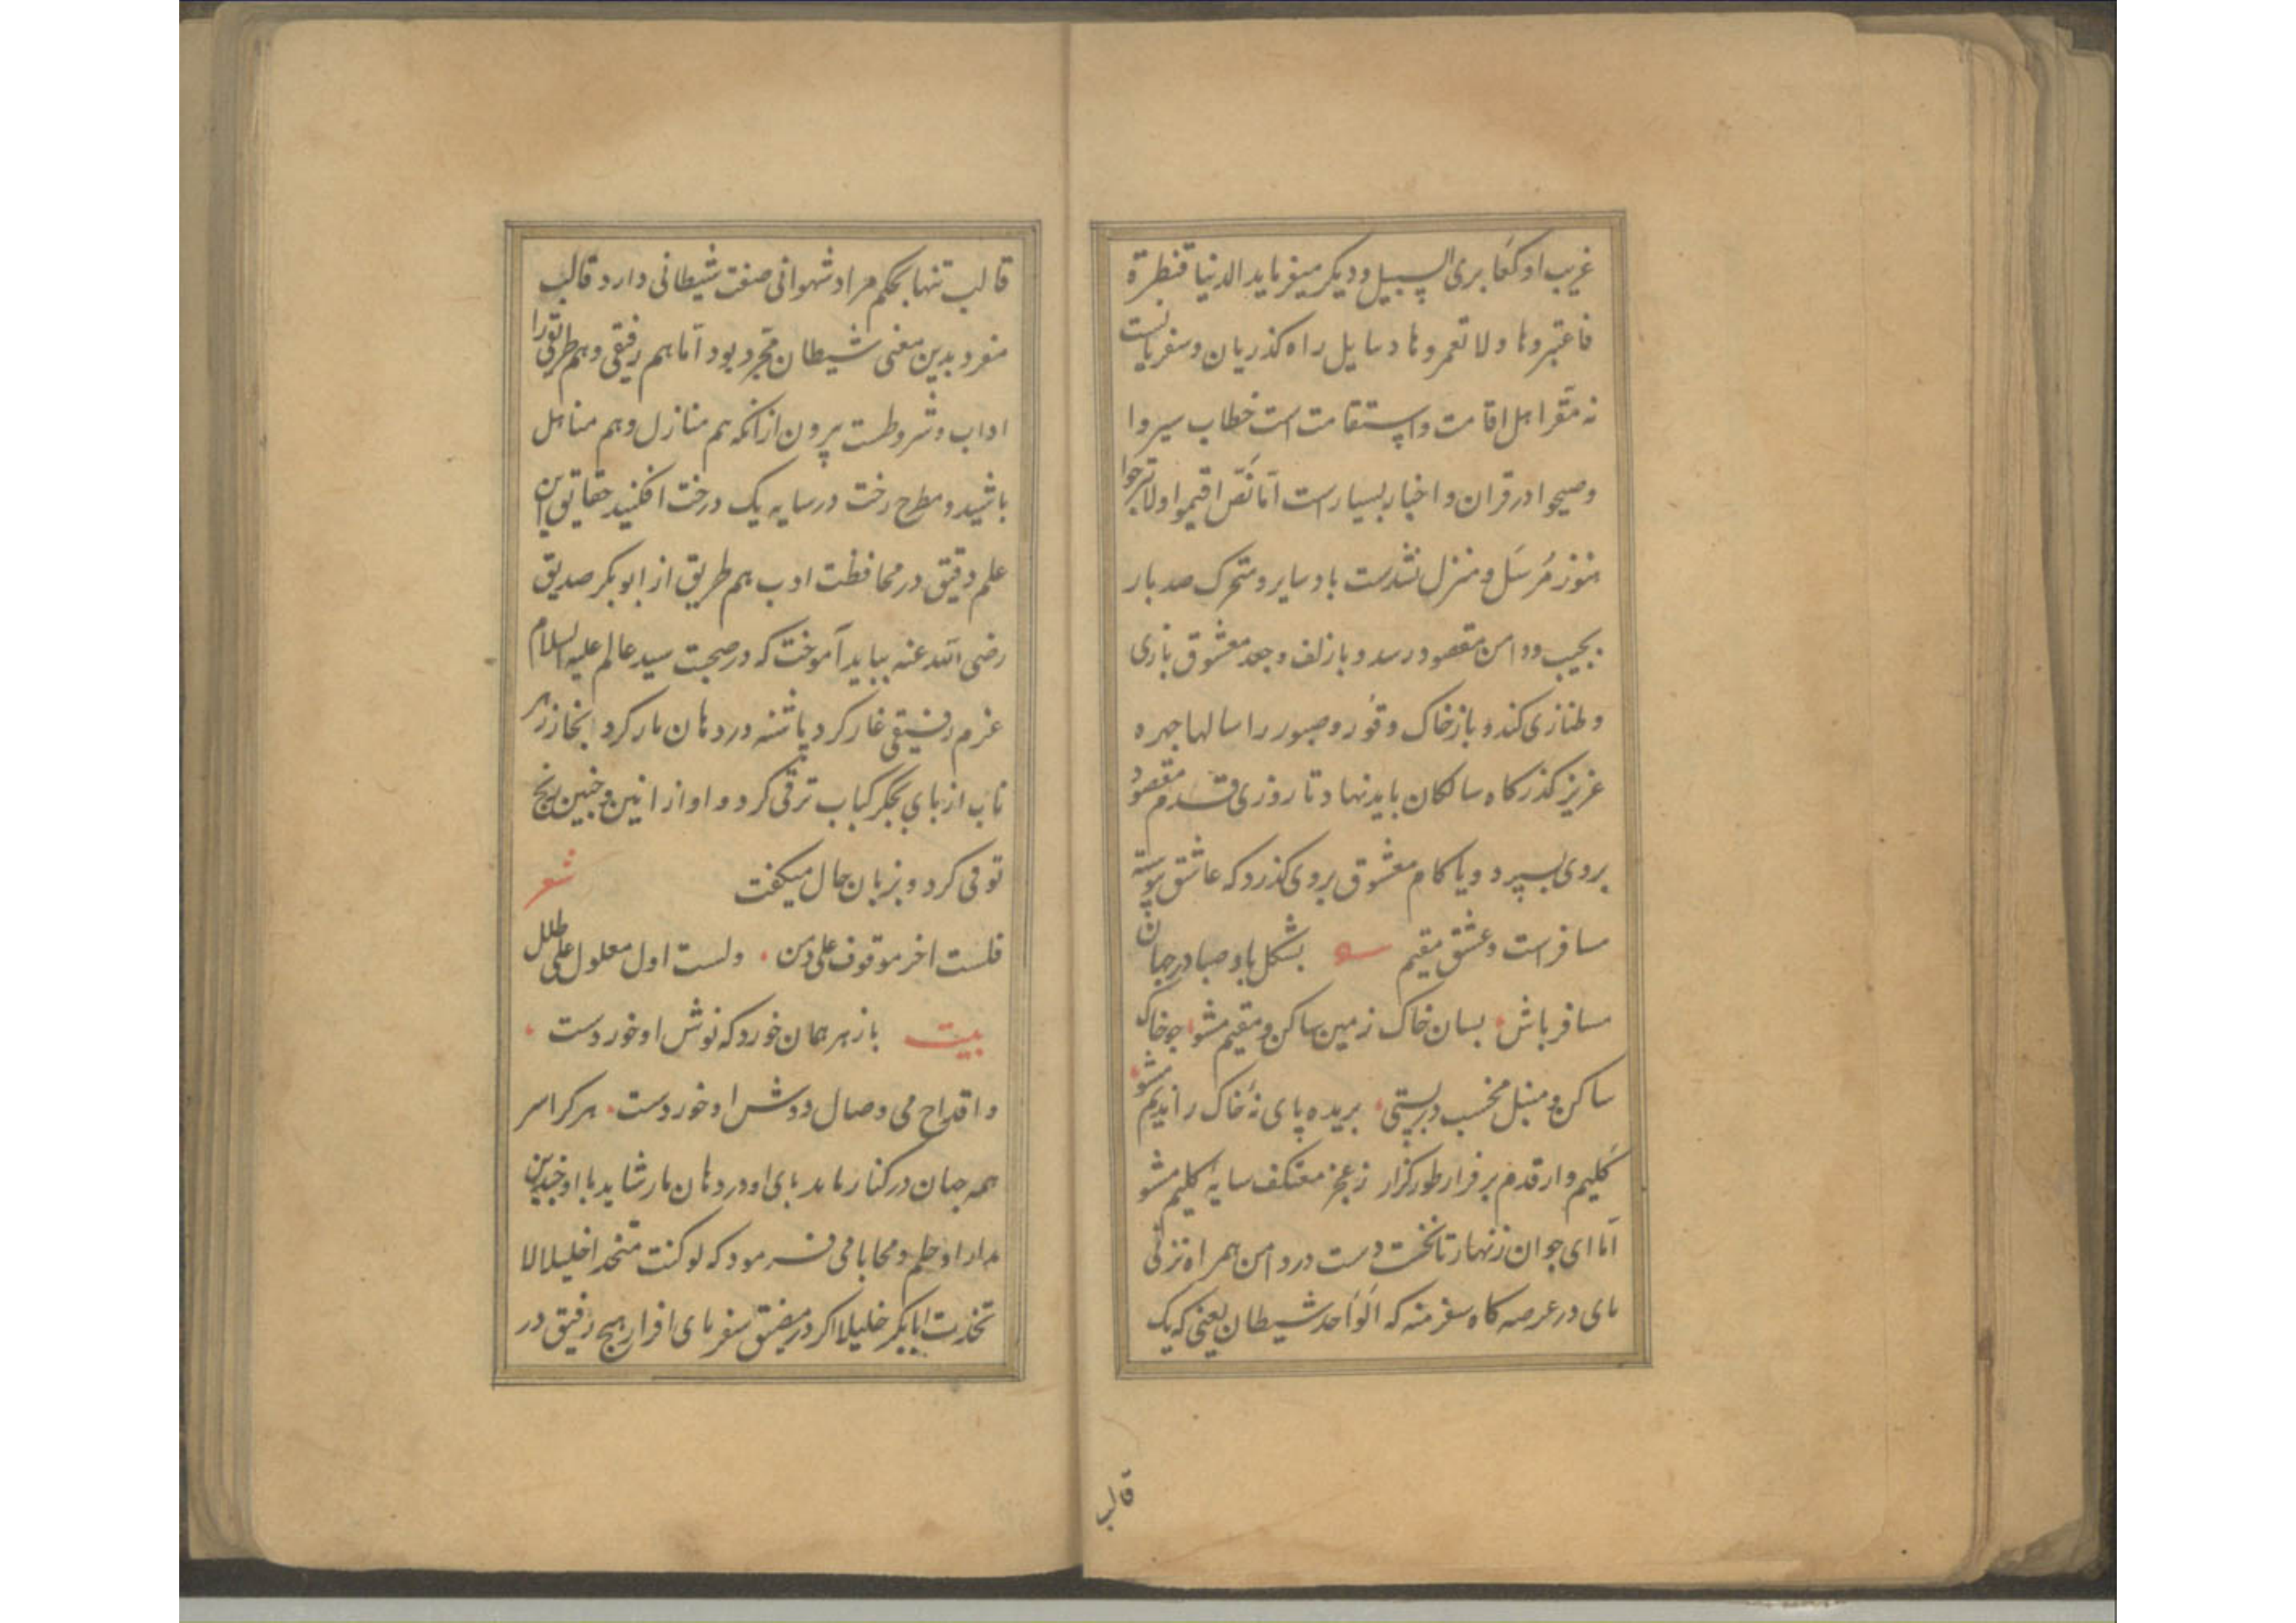 غریب او کعابری السبیل و دیکر میفرماید الدنیا قنطرة
فاعتبروها ولا تعمروها دسایل راه کذریان و سفریانست
نه مقر اهل اقامت و استقامت است خطاب سیروا
وصیحوا در قران و اخبار بسیارست اما نص اقیموا ولا تبرحوا
هنوز مرسل و منزل نشدست باد سایر و متحرک صد بار
بجیب و دامن مقصود رسد و با زلف و جعد معشوق بازی
و طنازی کند و باز خاک وقور و صبور را سالها جهره
عزیز کذرکاه سالکان باید نهاد تا روزی قدم مقصود
بروی بسپرد و یا کام معشوق بروی کذرد که عاشق پیوسته
مسافرست و عشق مقیم بشکل باد صبا در جهان
مسافر باش بسان خاک زمین ساکن و مقیم مشو جو خاک
ساکن و منبل مخسب در پستی بریده پای نه خاک را ندیم مشو
کلیم وار قدم بر فراز طور کزار ز عجز معتکف سایه کلیم مشو
اما ای جوان زنهار تا نخست دست در دامن همراه نزنی
بای در عرصه کاه سفر منه که الواحد شیطان یعنی که یک
قالب
قالب تنها بحکم مراد شهوانی صفت شیطانی دارد قالب
منفرد بدین معنی شیطان مجرد بود اما هم رفیقی و هم طریقی را
اداب و شروطست پرون از انکه هم منازل و هم مناهل
باشید و مطرح رخت در سایه یک درخت افکنید حقایق این
علم دقیق در محافظت ادب هم طریق از ابوبکر صدیق
رضی الله عنه بباید آموخت که در صحبت سید عالم علیه السلام
عزم رفیقی غار کرد پاشنه در دهان مار کرد بخار زهر
ناب از بای بجکر کباب ترقی کرد و او از انین و حنین هیج
توقی کرد و بزبان حال میکفت شعر
فلست اخر موقوف علی دمن ولست اول معلول علی طلل
بیت با زهر همان خورد که نوش او خوردست
و اقداح می وصال دوش او خوردست هر کرا سر
همه جهان در کنار ماند بای او در دهان مار شاید با او جندین
مدارا و حلم و محابا می فرمود که لو کنت متخذا خلیلا لا
تخذت ابابکر خلیلا اکر در مضیق سفر بای افزار هیج رفیق در